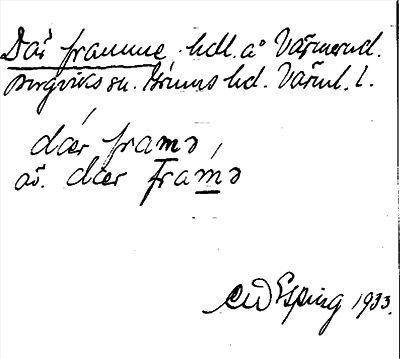 Där framme hdl. å Värmernd.
Borgviks sn. Grums hd. Värml. l.
dær framə,
äv. dær framə
CW Esping 1933.